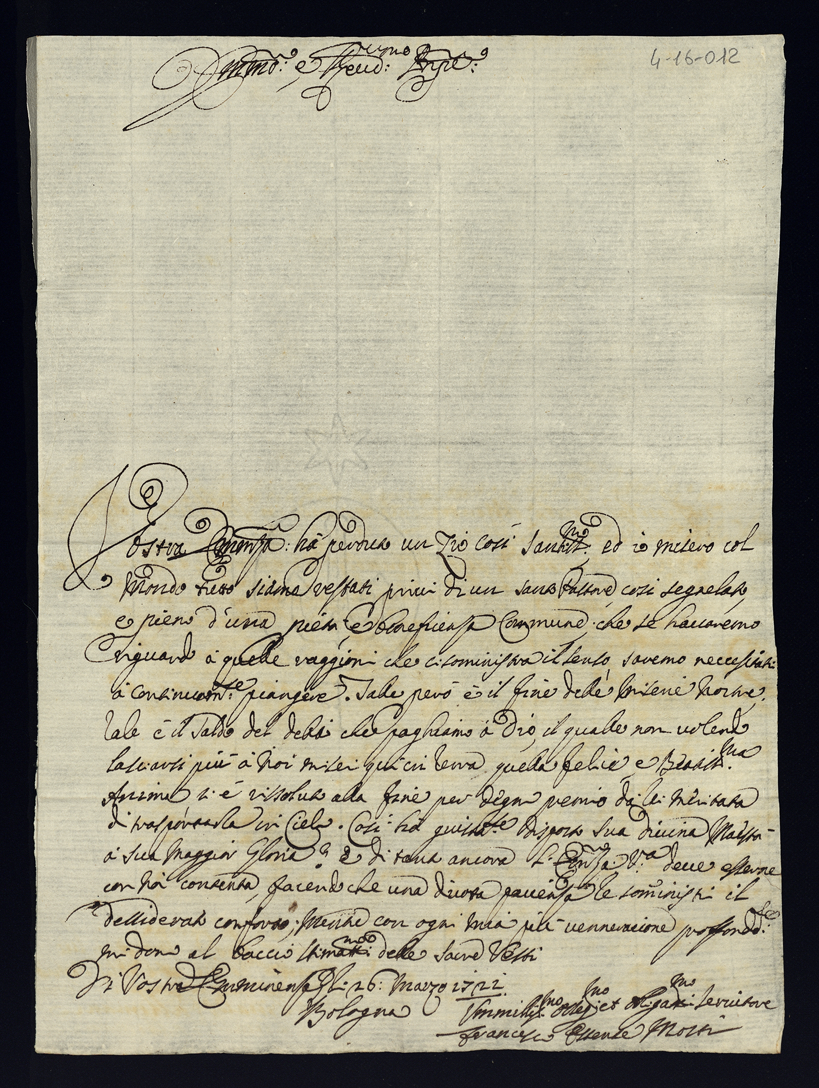 4-16-012
Emin.mo e Reud.mo Prpe.
Vostra Eminenza: hà perduto un Zio così Santis.mo, ed io misero col
Mondo tutto siamo restati privi di un santo Pastore, così segnalato,
e pieno d'una pietà, e beneficenza Commune: che se haveremo
riguardo à quelle raggioni che ci somministra il senso, saremo necessitati
à continuam.te piangere. Tale però è il fine delle miserie nostre,
tale è il saldo dei debiti che paghiamo à Dio il qualle non volendo
lasciarci più à noi miseri quì in terra quella felice e Beatiss.ma
Anima si è rissoluto alla fine per degno premio da lei meritato
di trasportarla in Cielo. Così hà giustam.te disposto sua divina Maestà
à sua maggior Gloria e di tanto ancora l'Em.nza V.a deve esserne
con noi contenta, facendo che una divota pacienza le somministri il
dessiderato conforto. Mentre con ogni mia più venneracione profondam.te
mi dono al baccio stimatiss.mo delle Sacre Vesti
Di Vostra Emminenza Li: 26: Marzo 1722
Bologna
Ummiliss.mo Devot.mo et obligatiss.mo Servitore
Francesco Estense Mosti